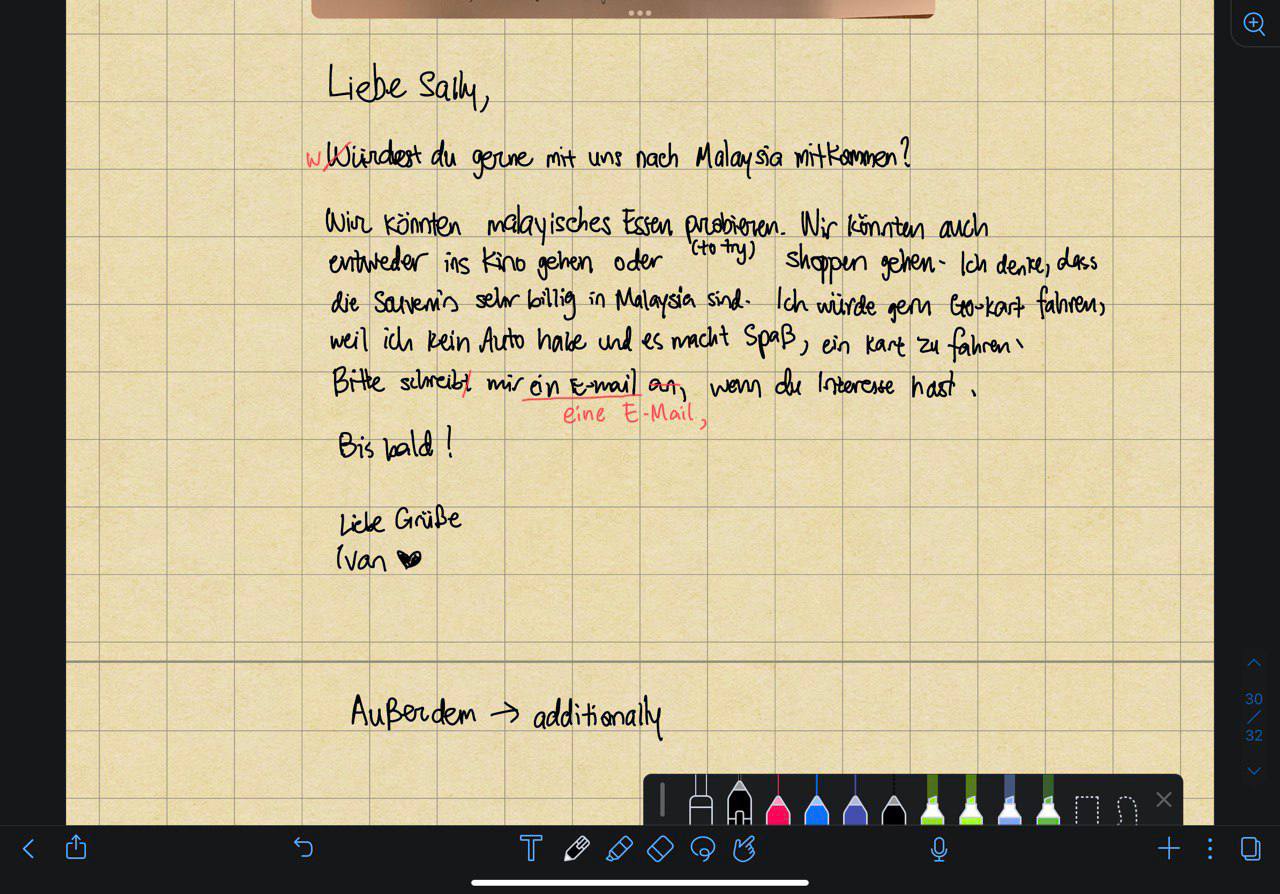 Liebe Sally,
w Würdest du gerne mit uns nach Malaysia mitkommen?
Wir könnten malayisches Essen probieren. Wir könnten auch
(to try)
entweder ins Kino gehen oder shoppen gehen. Ich denke, dass
die Suvenirs sehr billig in Malaysia sind. Ich würde gern Go-kart fahren,
weil ich kein Auto habe und es macht Spaß, ein Kart zu fahren.
Bitte schreibt mir ein E-mail an, wenn du Interesse hast.
eine E-Mail,
Bis bald!
Liebe Grüße
Ivan
Außerdem → additionally
30
/
32
T